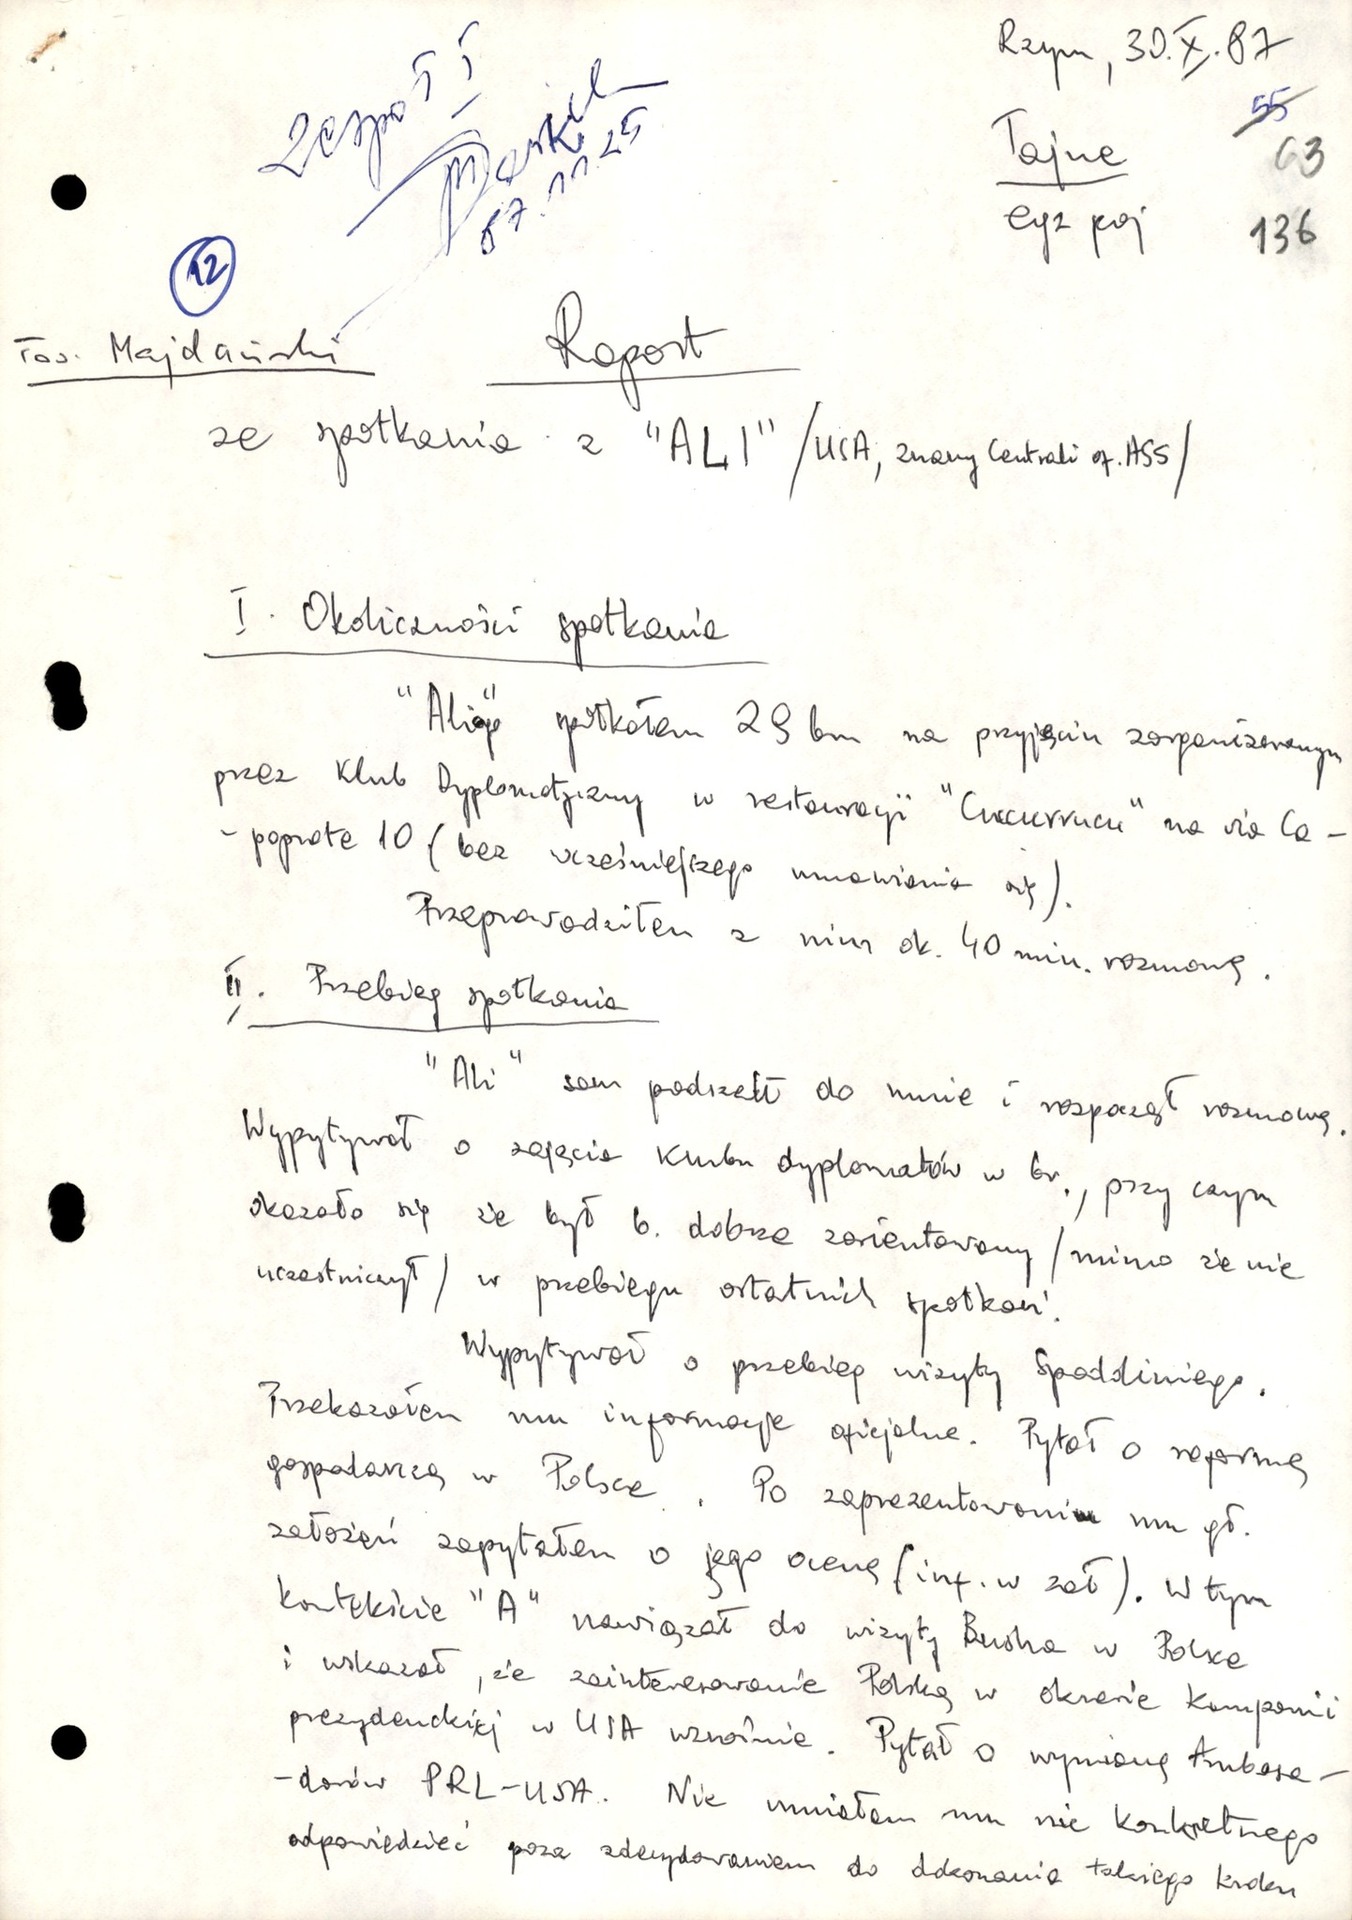 Rzym, 30.X.87
55
Tajne
63
egz poj
136
Zespół I
87.11.25
12
Tow. Majdański
Raport
ze spotkania z "ALI" /USA, znany Centrali of. ASS/
I. Okoliczności spotkania
"Aliego" spotkałem 29 bm na przyjęciu zorganizowanym
przez Klub Dyplomatyczny w restauracji "Cucurrucu" na via Ca-
-poprate 10 (bez wcześniejszego umawiania się).
Przeprowadziłem z nim ok. 40 min. rozmowę.
II. Przebieg spotkania
"Ali" sam podszedł do mnie i rozpoczął rozmowę.
Wypytywał o zajęcia Klubu dyplomatów w br., przy czym
okazało się że był b. dobrze zorientowany /mimo że nie
uczestniczył/ w przebiegu ostatnich spotkań.
Wypytywał o przebieg wizyty Spadoliniego.
Przekazałem mu informacje oficjalne. Pytał o reformę
gospodarczą w Polsce. Po zaprezentowaniu mu gł.
założeń zapytałem o jego ocenę (inf. w zał). W tym
kontekście "A" nawiązał do wizyty Busha w Polsce
i wskazał, że zainteresowanie Polską w okresie kampanii
prezydenckiej w USA wzrośnie. Pytał o wymianę Ambasa-
-dorów PRL-USA. Nie umiałem mu nic konkretnego
odpowiedzieć poza zdecydowaniem do dokonania takiego kroku